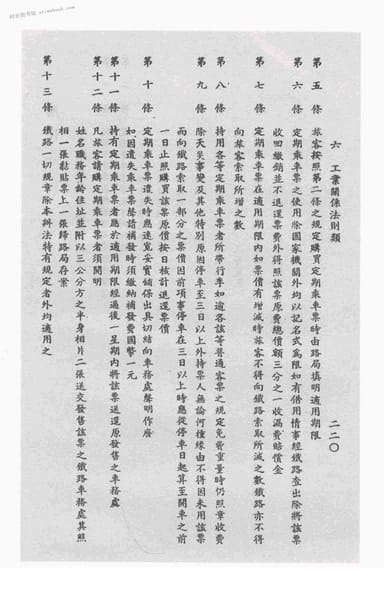 六　工業關係法則類
二二〇
第五條　旅客按照第二條之規定購買定期乘車票時由路局填明適用期限
第六條　定期乘車票之使用除國家機關外均以記名式爲限如有借用情事經鐵路查出除將該票
收回繳銷並不退還票費外得照該票原費總價額三分之一收漏費賠償金
第七條　定期乘車票在適用期限內如票價有增減時旅客不得向鐵路索取所減之數鐵路亦不得
向旅客索取所增之數
第八條　持用各等定期乘車票者所帶行李如逾各該等普通客票之規定免費重量時仍照章收費
第九條　除天災事變及其他特別原因停車至三日以上外持票人無論何種緣由不得因未用該票
而向鐵路索取一部分之票價因前項事停車在三日以上時應從停車日起算至開車之前
一日止照購買該票原價按日核計退還票價
第十條　定期乘車票遺失時應速覓妥實鋪保出具切結向車務處聲明作廢
如因遺失乘車票聲請補發時須繳納補發費國幣一元
第十一條　持有定期乘車票者應於適用期限經過後一星期內將該票送還原發售之車務處
第十二條　凡旅客請購定期乘車票者須開明
姓名職務年齡住址並附以三公分方之半身相片二張送交發售該票之鐵路車務處其照
相一張黏貼票上一張歸路局存案
第十三條　鐵路一切規章除本辦法特有規定者外均適用之